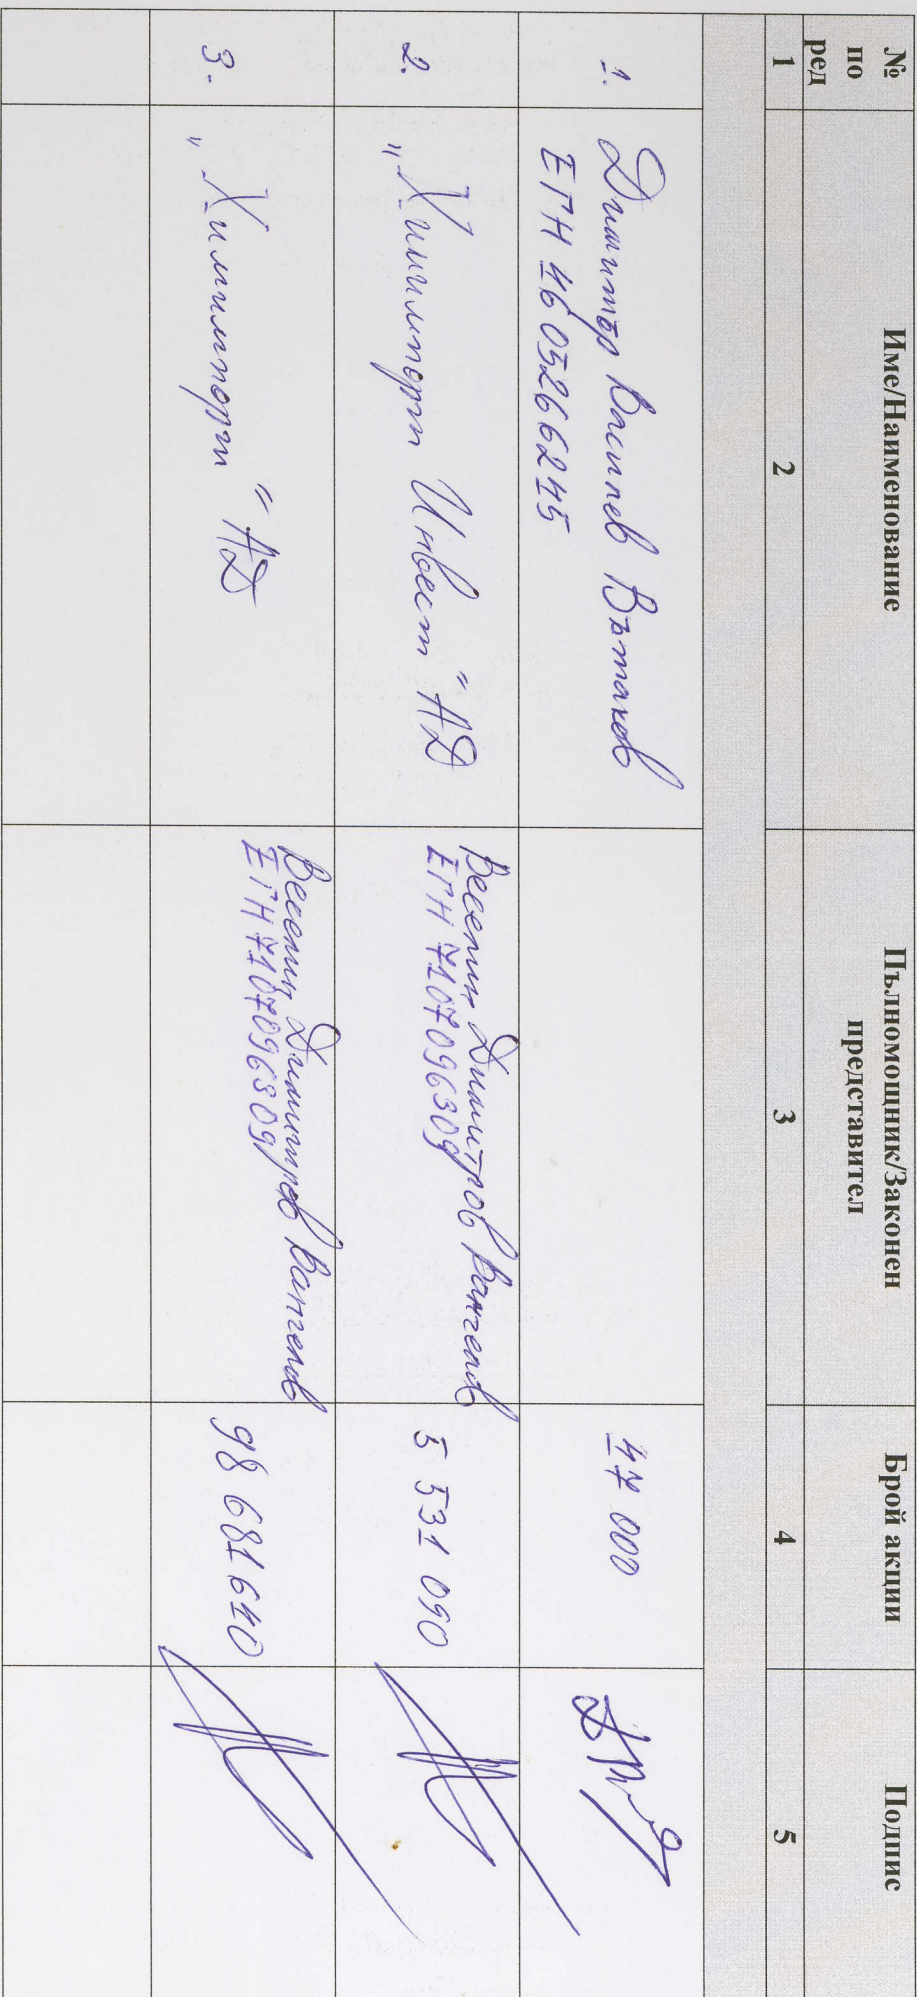 № по ред Име/Наименование Пълномощник/Законен представител Брой акции Подпис
1 2 3 4 5
1. Димитър Василев Вътахов 47 000
ЕГН 4605266245
2. „Химимпорт Инвест“ АД Веселин Димитров Вангелов 5 531 090
ЕГН 7107096309
3. „Химимпорт“ АД Веселин Димитров Вангелов 98 681 640
ЕГН 7107096309